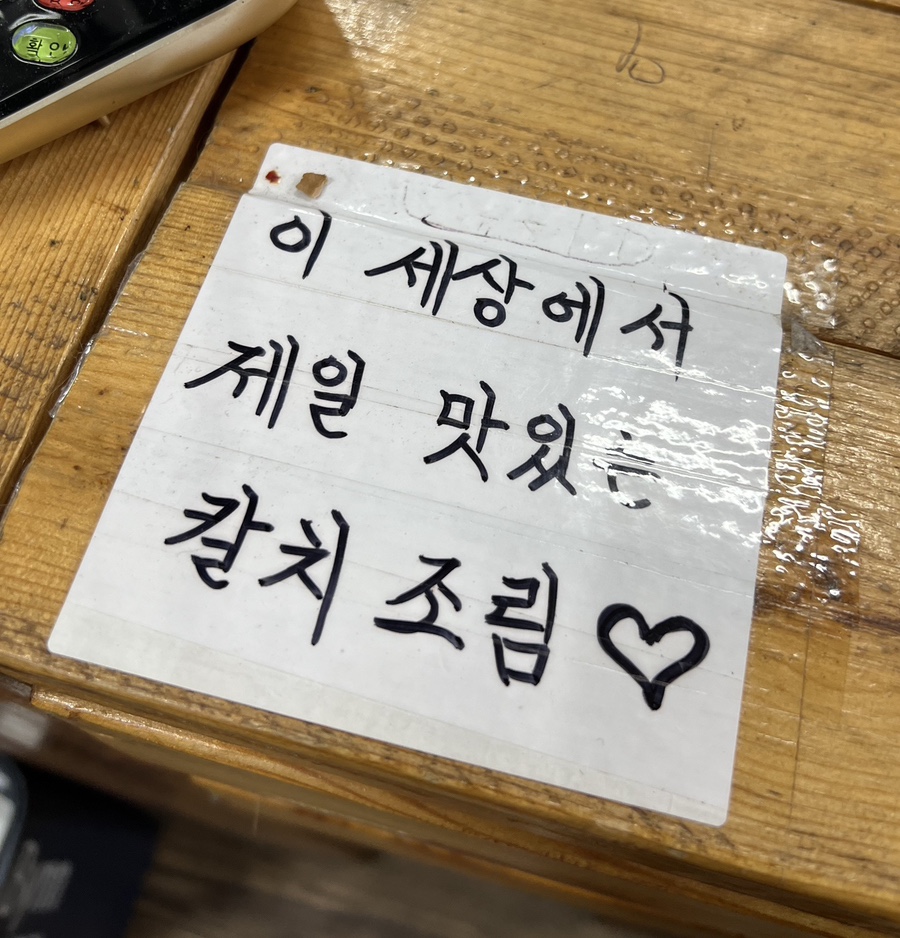 확인
이 세상에서
제일 맛있는
칼치 조림 ♡